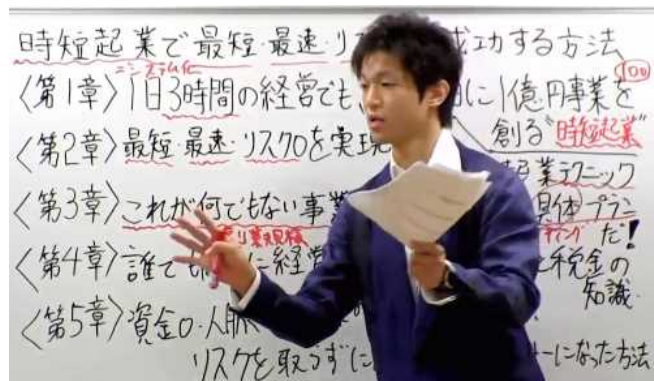 時短起業で最短・最速・リ 成功する方法
システム化
〈第1章〉1日3時間の経営でも、 に1億円事業を
100
創る"時短起業"
〈第2章〉最短・最速・リスク0を実現
業テクニック
〈第3章〉これが何でもない事業 具体プラン
業規模 ィング だ!
〈第4章〉誰でも に経営 と税金の
知識
〈第5章〉資金0・人脈
リスクを取らずに ーになった方法